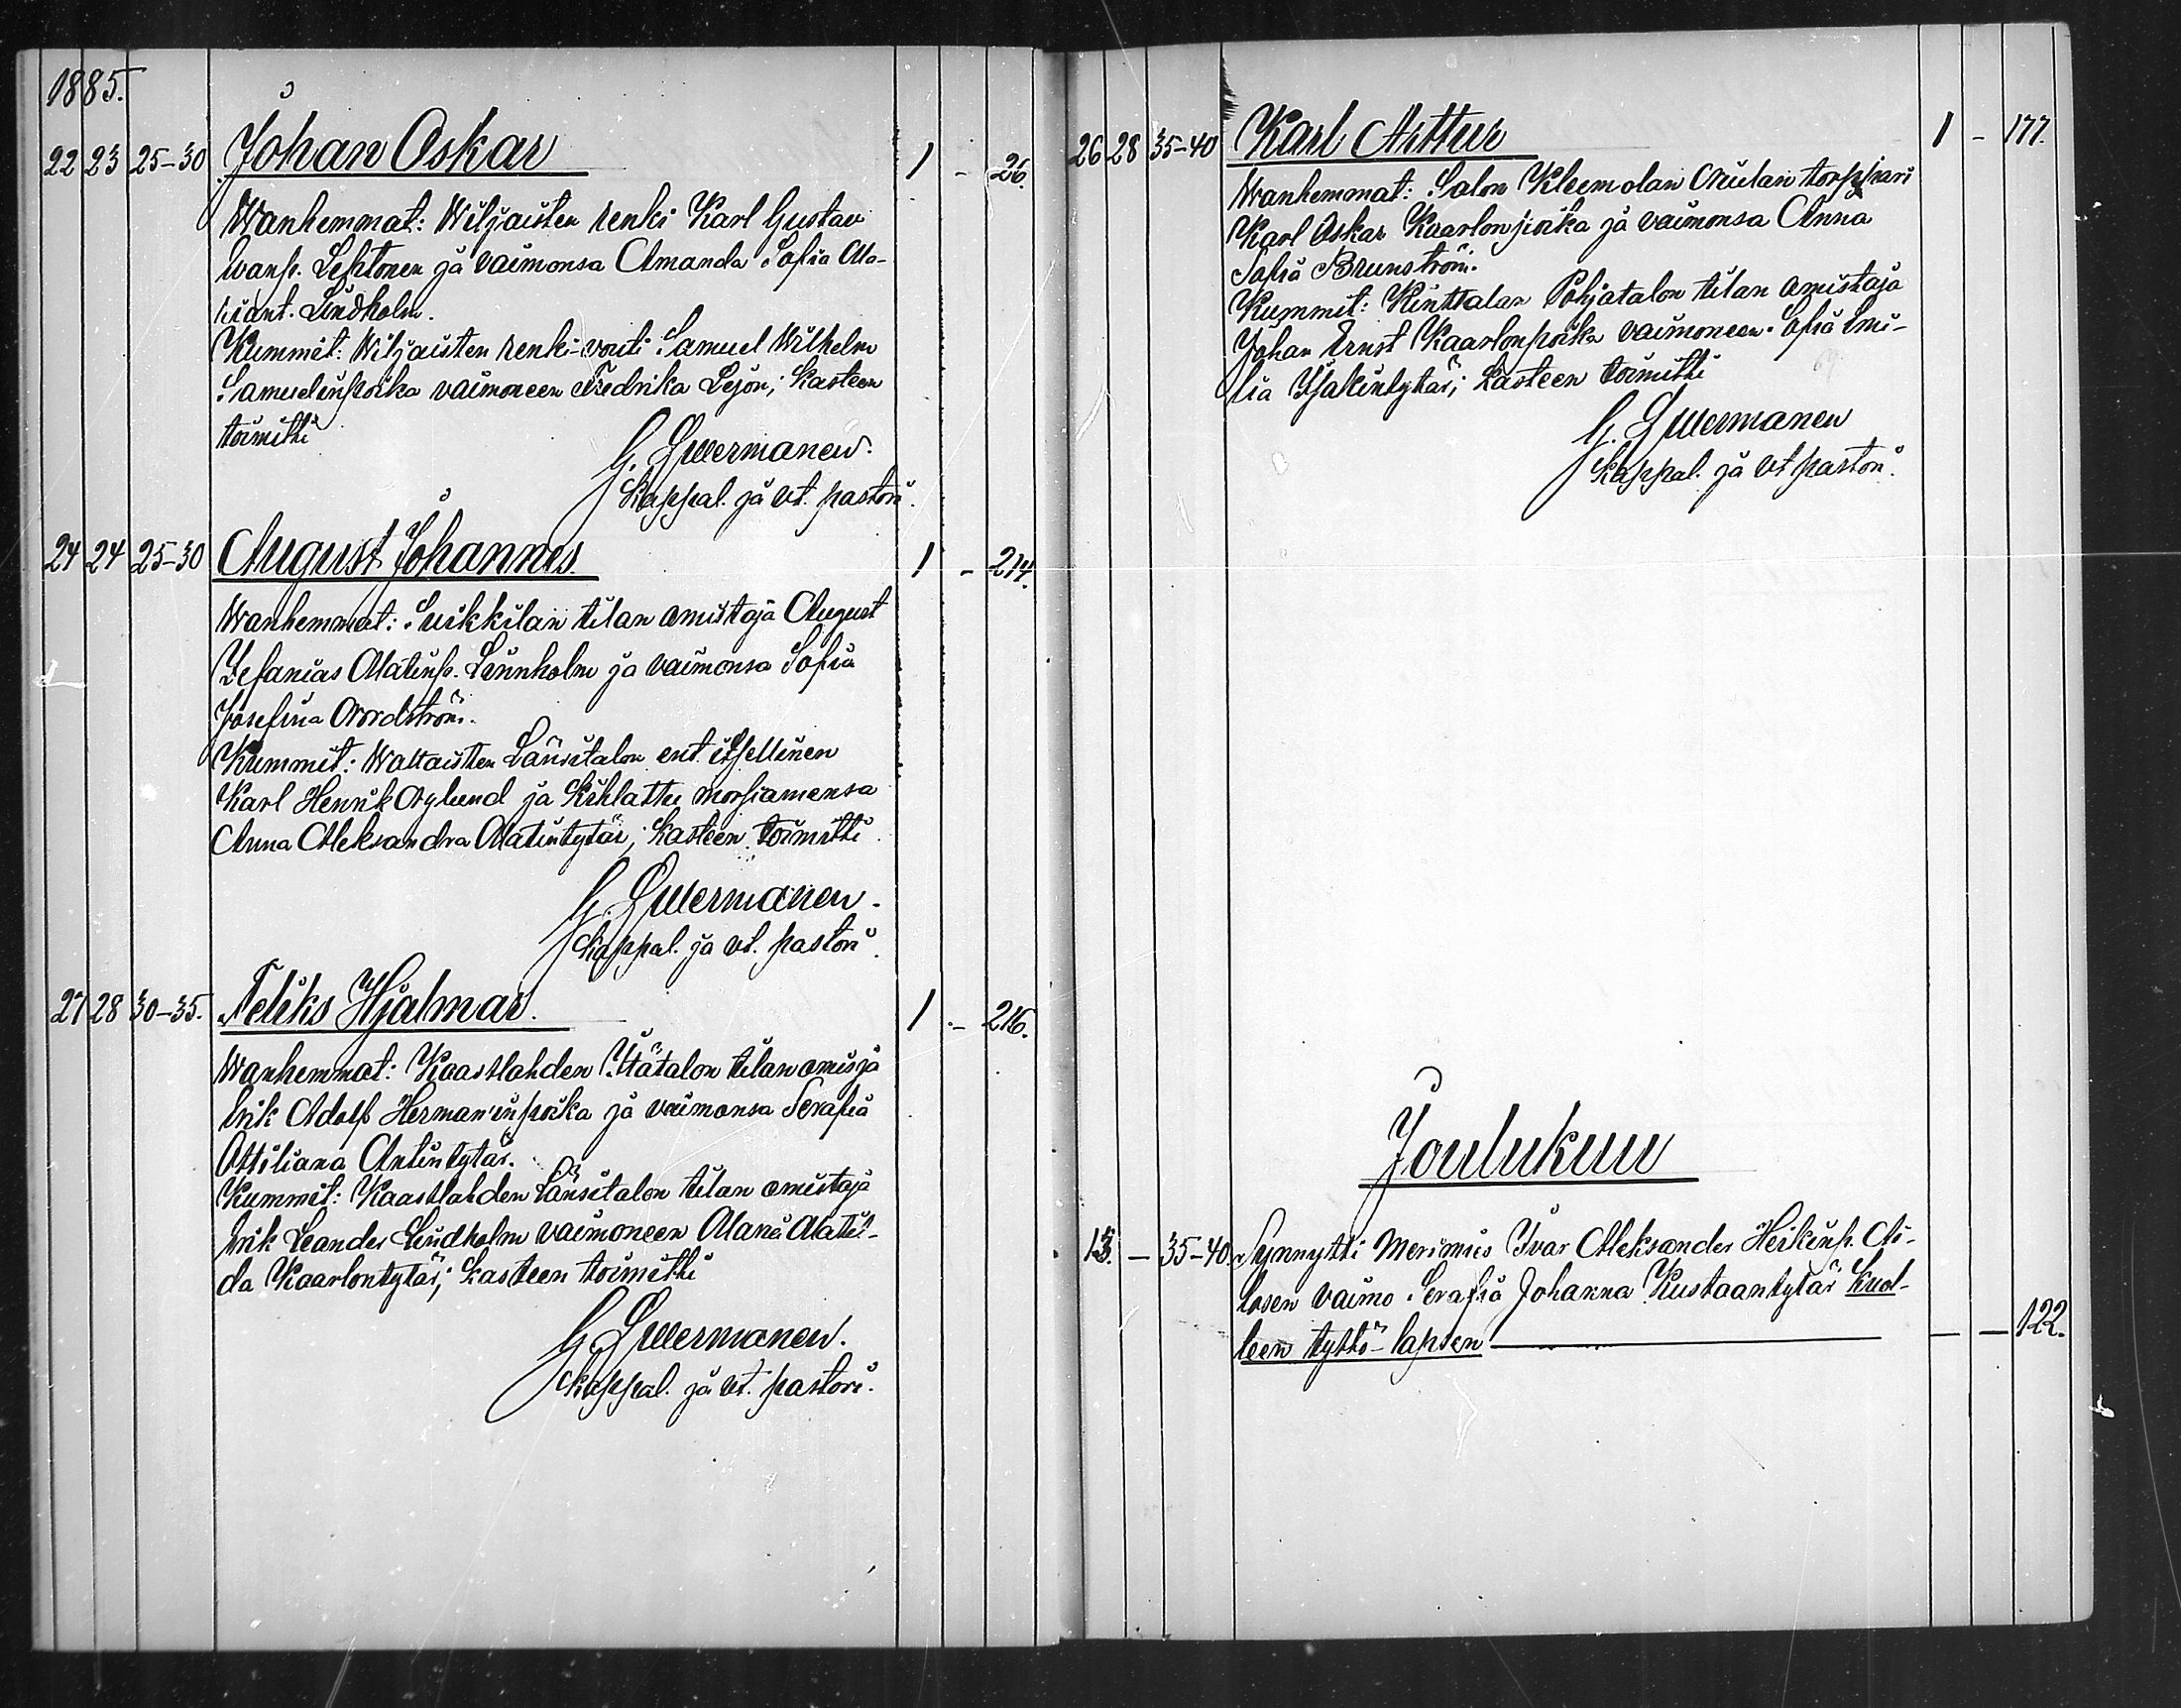 1885.
22 23 25-30 Johan Oskar 1 - 26.
Wanhemmat: Wiljaisten renki Karl Gustav
Iwanp. Lehtonen ja vaimonsa Amanda Sofia Ma-
riant. Lindholm.
Kummit: Wiljaisten renki-vouti Samuel Wilhelm
Samuelinpoika vaimoneen Fredrika Lejon; kasteen
toimitti
G. Cavermanen.
Kappal. ja vt. pastori.
24 24 25-30 August Johannes 1 - 214.
Wanhemmat: Suikkilan tilan omistaja August
Zefanias Matinp. Lönnholm ja vaimonsa Sofia
Josefina Nordström.
Kummit: Wattaisten Länsitalon ent. itsellinen
Karl Henrik Nylund ja kihlattu morsiamensa
Anna Aleksandra Matintytär; kasteen toimitti
Kappal. ja vt. pastori.
27 28 30-35. Feliks Hjalmar. 1 - 216.
Wanhemmat: Kaastlahden Ylätalon tilan omis:ja
Erik Adolf Herman'inpoika ja vaimonsa Serafia
Ottiliana Antintytär.
Kummit: Kaastlahden Länsitalon tilan omistaja
Erik Leander Lindholm vaimoneen Maria Matil-
da Kaarlontytär; kasteen toimitti
Kappal. ja vt. pastori.
26 28 35-40 Karl Arttur 1 - 177.
Wanhemmat: Salon Kleemolan Niilan torppari
Karl Oskar Kaarlonpoika ja vaimonsa Anna
Sofia Brunström.
Kummit: Kinttalan Pohjatalon tilan omistaja
Johan Ernst Kaarlonpoika vaimoneen Sofia Emi-
lia Isakintytär; kasteen toimitti
Kappal. ja vt. pastori.
Joulukuu
13. - 35-40. Synnytti Merimies Ivar Aleksander Heikinp. Ai-
losen vaimo Serafia Johanna Kustaantytär kuol-
leen tyttö-lapsen - - 122.